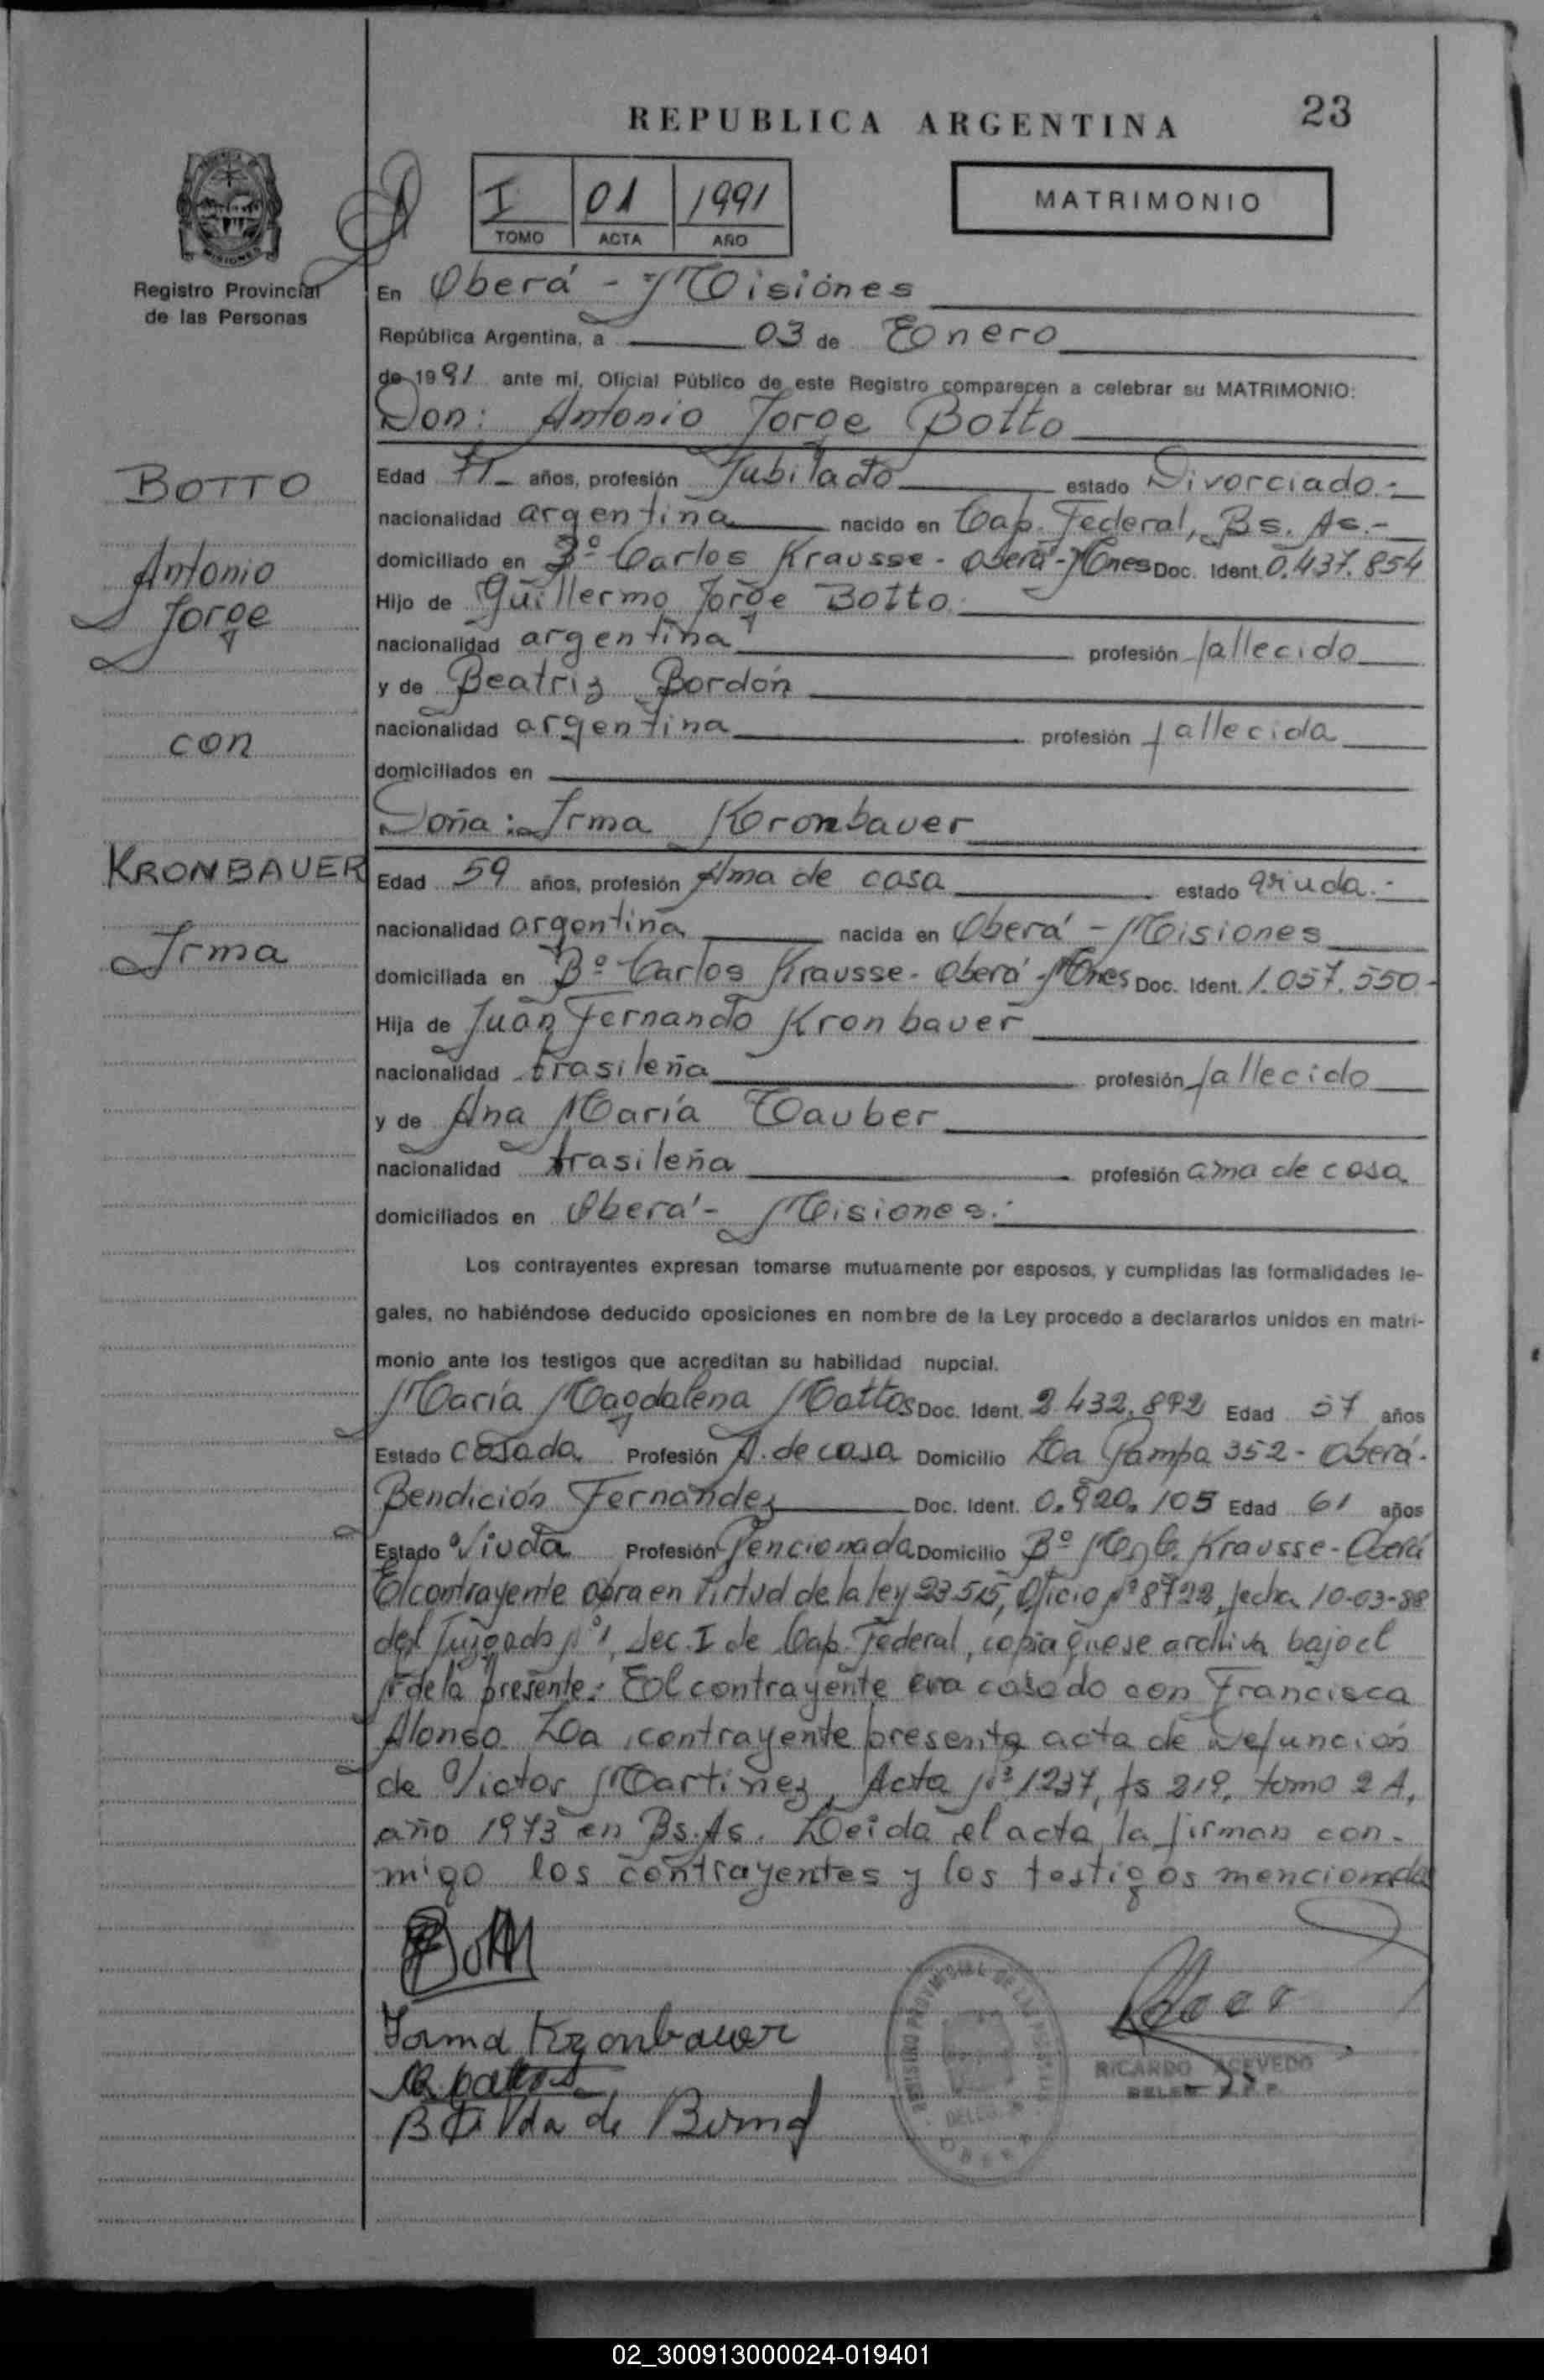 REPUBLICA ARGENTINA
23
I 01 1991
TOMO ACTA AÑO
MATRIMONIO
MISIONES
Registro Provincial
de las Personas
En Oberá - Misiones
República Argentina, a 03 de Enero
de 1991 ante mi, Oficial Público de este Registro comparecen a celebrar su MATRIMONIO:
Don: Antonio Jorge Botto
BOTTO
Antonio
Jorge
con
KRONBAUER
Irma
Edad 71 años, profesión Jubilado estado Divorciado.-
nacionalidad argentina nacido en Cap. Federal, Bs. As.-
domiciliado en Bº Carlos Krausse - Oberá - Mnes Doc. Ident. 0.437.854
Hijo de Guillermo Jorge Botto
nacionalidad argentina profesión fallecido
y de Beatriz Bordón
nacionalidad argentina profesión fallecida
domiciliados en
Doña: Irma Kronbauer
Edad 59 años, profesión Ama de casa estado viuda.-
nacionalidad argentina nacida en Oberá - Misiones
domiciliada en Bº Carlos Krausse - Oberá - Mnes Doc. Ident. 1.057.550-
Hija de Juan Fernando Kronbauer
nacionalidad brasileña profesión fallecido
y de Ana María Tauber
nacionalidad brasileña profesión ama de casa
domiciliados en Oberá - Misiones.-
Los contrayentes expresan tomarse mutuamente por esposos, y cumplidas las formalidades le-
gales, no habiéndose deducido oposiciones en nombre de la Ley procedo a declararlos unidos en matri-
monio ante los testigos que acreditan su habilidad nupcial.
María Magdalena Mattos Doc. Ident. 2.432.892 Edad 57 años
Estado casada Profesión A. de casa Domicilio La Pampa 352 - Oberá.
Bendición Fernandez Doc. Ident. 0.920.105 Edad 61 años
Estado Viuda Profesión Pencionada Domicilio Bº Krausse - Oberá
El contrayente obra en virtud de la ley 23515, Oficio Nº 8722, fecha 10-03-88
del Juzgado Nº 1, Sec. I de Cap. Federal, copia que se archiva bajo el
Nº de la presente. El contrayente era casado con Francisca
Alonso. La contrayente presenta acta de Defunción
de Victor Martinez, Acta Nº 1237, fs 219, tomo 2 A,
año 1973 en Bs. As. Leida el acta la firman con-
migo los contrayentes y los testigos mencionados
Irma Kronbauer
REGISTRO PROVINCIAL DE LAS PERSONAS
OBERA
RICARDO ACEVEDO
02_300913000024-019401